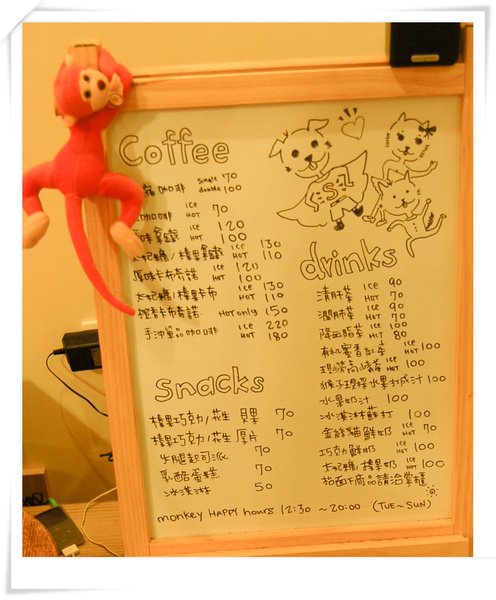 Coffee
咖啡 single 70
double 100
咖啡 ICE
HOT 70
原味拿鐵 ICE 120
HOT 100
卡妃糖/榛果拿鐵 ICE 130
HOT 110
原味卡布奇諾 ICE 120
HOT 100
卡妃糖/榛果卡布 ICE 130
HOT 110
卡布奇諾 HOT only 150
手沖單品咖啡 ICE 220
HOT 180
Snacks
榛果巧克力/花生 貝果 70
榛果巧克力/花生 厚片 70
牛腿起司派 70
乳酪蛋糕 70
冰淇淋 50
drinks
清肝茶 ICE 90
HOT 70
潤肺茶 ICE 90
HOT 70
降血脂茶 ICE 100
HOT 80
有机蜜香紅茶 ICE
HOT 100
現榨水果打成汁 100
水果奶汁 100
冰淇淋蘇打 100
金絲貓鮮奶 ICE
HOT 100
巧克力鮮奶 ICE
HOT 100
卡妃糖/榛果奶 ICE
HOT 100
商品請洽掌櫃
monkey HAPPY hours 12:30 ~ 20:00 (TUE~SUN)